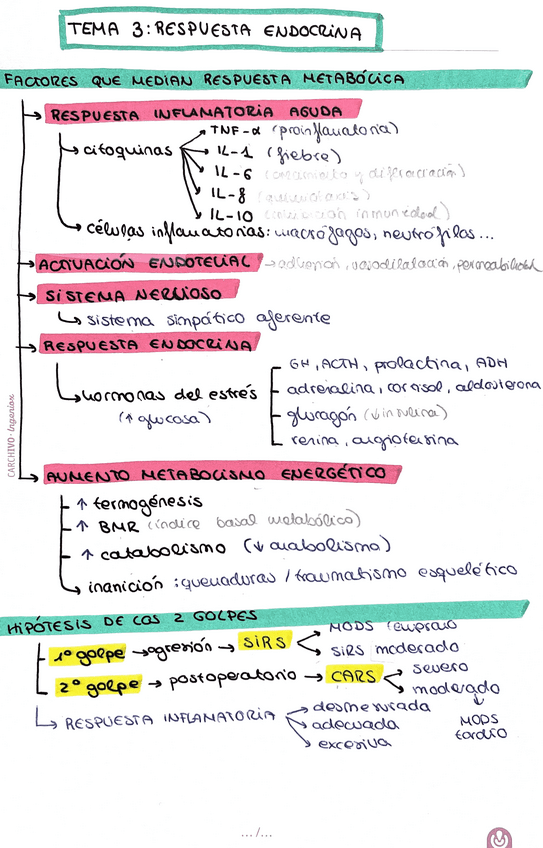 TEMA 3: RESPUESTA ENDOCRINA
FACTORES QUE MEDIAN RESPUESTA METABÓLICA
→ RESPUESTA INFLAMATORIA AGUDA
→ citoquinas
TNF-α (proinflamatoria)
IL-1 (fiebre)
IL-6 (crecimiento y diferenciación)
IL-8 (quimiotaxis)
IL-10 (inmunidad)
→ células inflamatorias: macrófagos, neutrófilos...
→ ACTIVACIÓN ENDOTELIAL → adhesión, vasodilatación, permeabilidad
→ SISTEMA NERVIOSO
→ sistema simpático aferente
→ RESPUESTA ENDOCRINA
GH, ACTH, prolactina, ADH
→ hormonas del estrés
adrenalina, cortisol, aldosterona
(↑ glucosa)
glucagón (↓ insulina)
renina, angiotensina
→ AUMENTO METABOLISMO ENERGÉTICO
↑ termogénesis
↑ BMR (índice basal metabólico)
↑ catabolismo (↓ anabolismo)
inanición: quemaduras / traumatismo esquelético
HIPÓTESIS DE LOS 2 GOLPES
MODS temprano
1º golpe → agresión → SIRS
SIRS moderado
2º golpe → postoperatorio → CARS
severo
moderado
↓
MODS
tardío
→ RESPUESTA INFLAMATORIA
desmesurada
adecuada
excesiva
CARCHIVO-Ingenian
.../...